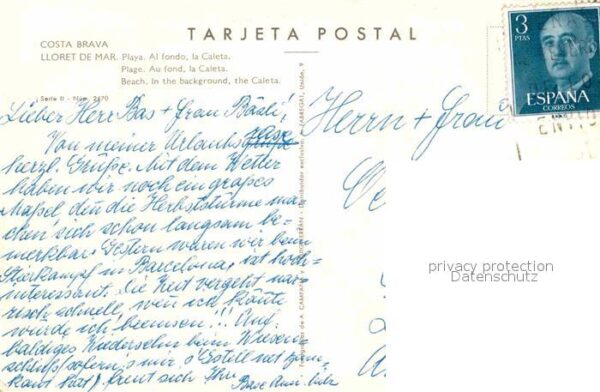 TARJETA POSTAL
COSTA BRAVA
LLORET DE MAR. Playa. Al fondo, la Caleta.
Plage. Au fond, la Caleta.
Beach. In the background, the Caleta.
Serie II - Núm. 2470
3
PTAS
ESPAÑA
CORREOS
Lieber Herr Bas + Frau Bäsli,
Von meiner Urlaubs
herzl. Grüße. Mit dem Wetter
haben wir noch ein großes
Massel, denn die Herbststürme ma-
chen sich schon langsam be-
merkbar. Gestern waren wir beim
Stierkampf in Barcelona, ist hoch-
interessant. Die Zeit vergeht nat-
risch schnell, wenn ich könnte
würde ich beemsen!!! Auf
baldiges Wiedersehn beim Wiesen-
schluß sofern's mir 's
freut sich Ihre
Herrn + Frau
privacy protection
Datenschutz